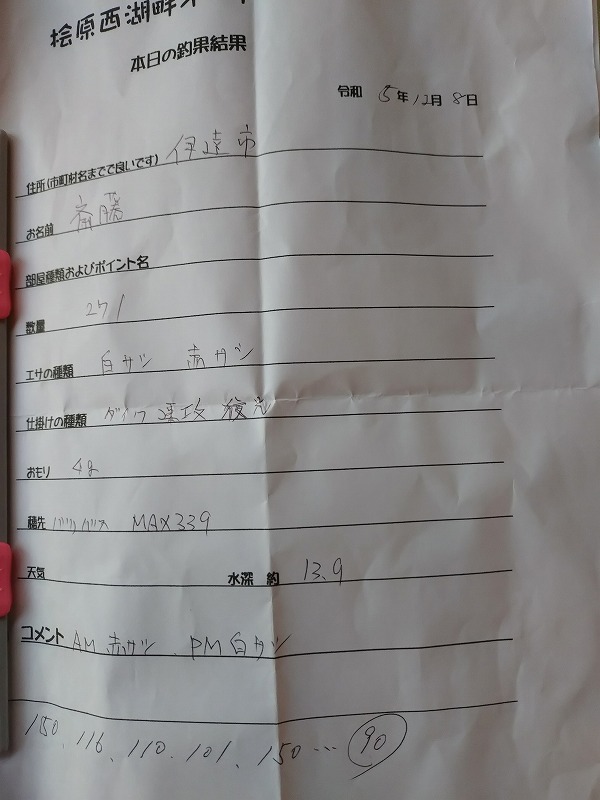 桧原西湖畔
本日の釣果結果
令和 5年12月8日
住所(市町村名までで良いです) 伊達市
お名前 斎藤
部屋種類およびポイント名
数量 271
エサの種類 白サシ 赤サシ
仕掛けの種類 ダイワ 速攻
おもり 4g
穂先 MAX339
天気 水深 約 13.9
コメント AM 赤サシ、PM 白サシ
150、116、110、101、150… 90